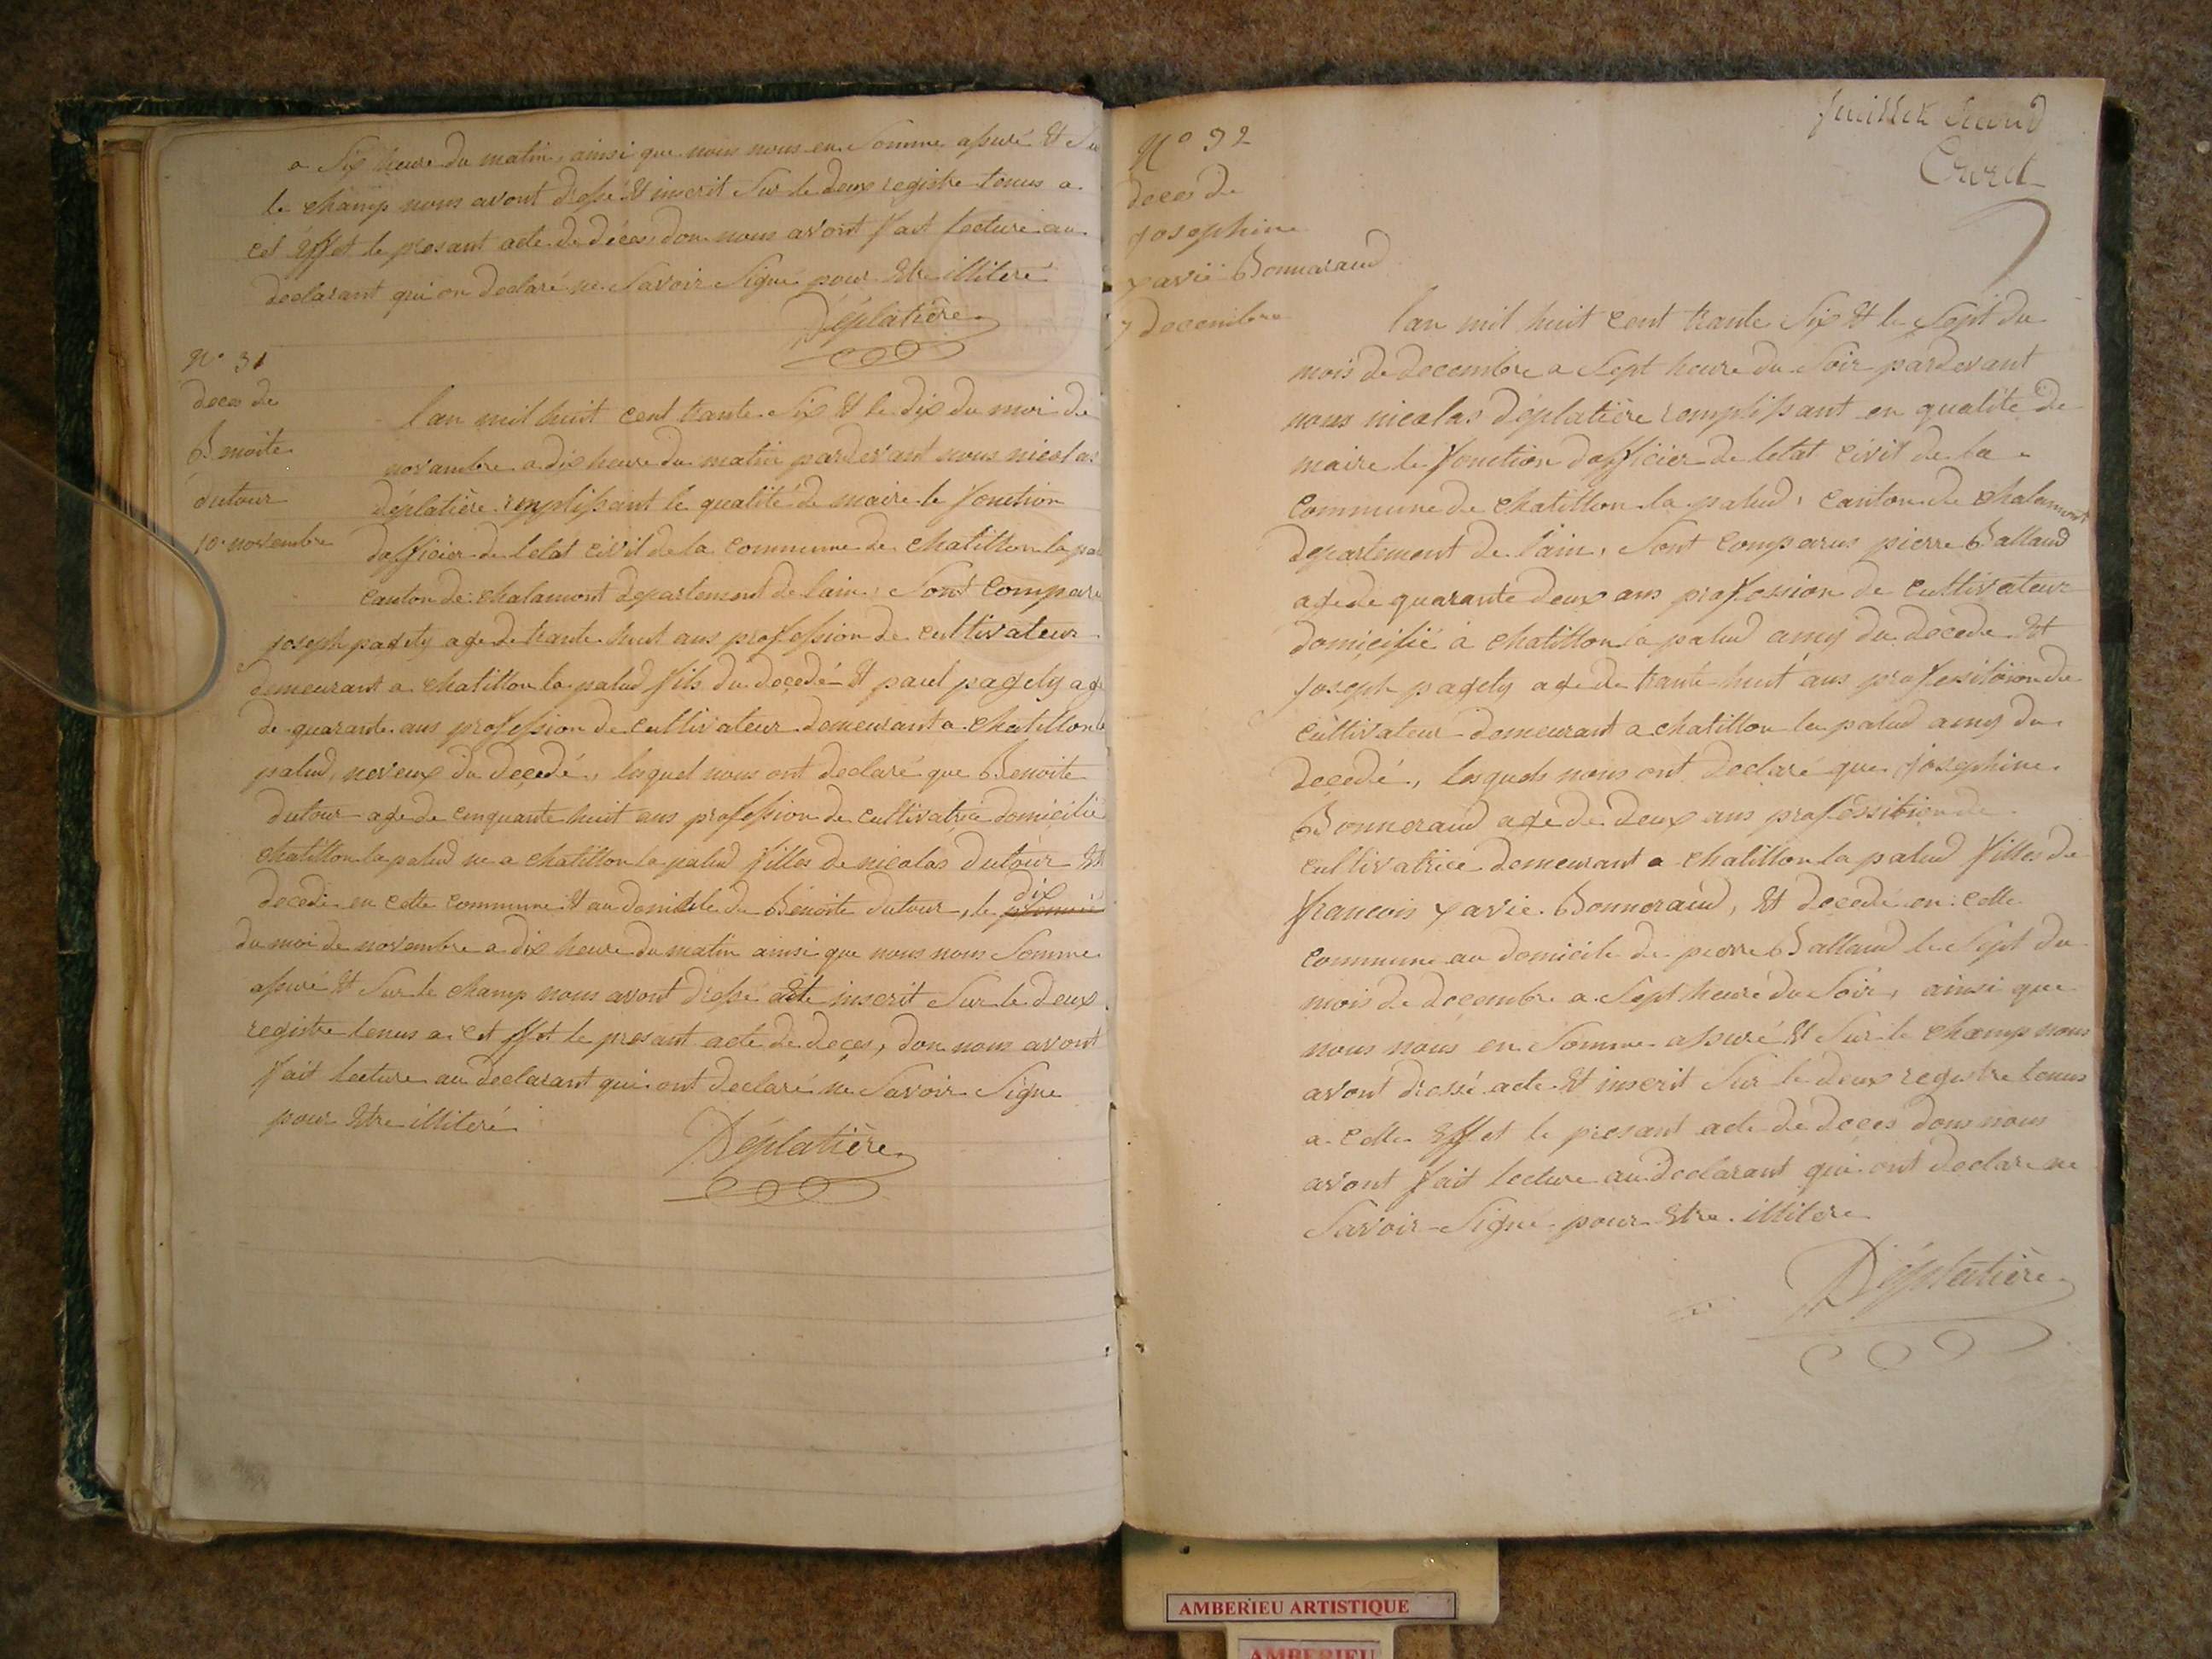 a Six heure du matin, ainsi que nous nous en Somme assuré Et Su
le champ nous avont dressé Et inscrit Sur le deux registre tenus a
cet Effet le presant acte de déces don nous avont fait lecture au
declarant qui on declaré ne Savoir Signé pour Etre illiteré
Déplatière
N° 31
deces de
Benoite
dutour
10 novembre
lan mil huit cent trante Six Et le dix du moi de
novambre a dix heure du matin pardevant nous nicolas
déplatière remplissant le qualité de maire le fonction
dofficier de letat civil de la commune de chatillon la pa
canton de chalamont departement de lain, Sont compare
joseph pagety age de trante huit ans profession de cultivateur
demeurant a chatillon la palud fils du decedé Et paul pagety age
de quarante ans profession de cultivateur demeurant a chatillon la
palud, neveux du decedé, lesquel nous ont declaré que Benoite
dutour age de cinquante huit ans profession de cultivatrice domicilié
chatillon la palud ne a chatillon la palud filles de nicolas dutour Et
decedé en cette commune Et au domicile de Benoite dutour, le dix
du moi de novembre a dix heure du matin ainsi que nous nous Somme
assuré Et Sur le champ nous avont dressé acte inscrit Sur le deux
registre tenus a cet Effet le presant acte de deces, don nous avont
fait lecture au declarant qui ont declaré ne Savoir Signe
pour Etre illiteré
Déplatière
feuillet Second
N° 32
deces de
josephine
xavié Bonnaraud
7 decembre
lan mil huit cent trante Six Et le Sept du
mois de decembre a Sept heure du Soir pardevant
nous nicolas déplatière remplissant en qualité de
maire le fonction dofficier de letat civil de la
commune de chatillon la palud, canton de chalamont
departement de l'ain, Sont comparus pierre Balland
age de quarante deux ans profession de cultivateur
domicilié à chatillon la palud amy du decede Et
joseph pagety age de trante huit ans professition de
cultivateur demeurant a chatillon la palud amy du
decedé, lesquels nous ont declaré que josephine
Bonneraud age de deux ans professition de
cultivatrice demeurant a chatillon la palud filles de
francois xavie Bonneraud, Et decedé en cette
commune au domicile de pierre Balland le Sept du
mois de decembre a Sept heure du Soir, ainsi que
nous nous en Somme assuré Et Sur le champ nous
avont dressé acte Et inscrit Sur le deux registre tenus
a cette Effet le presant acte de deces dons nous
avont fait lecture au declarant qui ont declare ne
Savoir Signé pour Etre illitere
Déplatière
AMBERIEU ARTISTIQUE
AMBERIEU